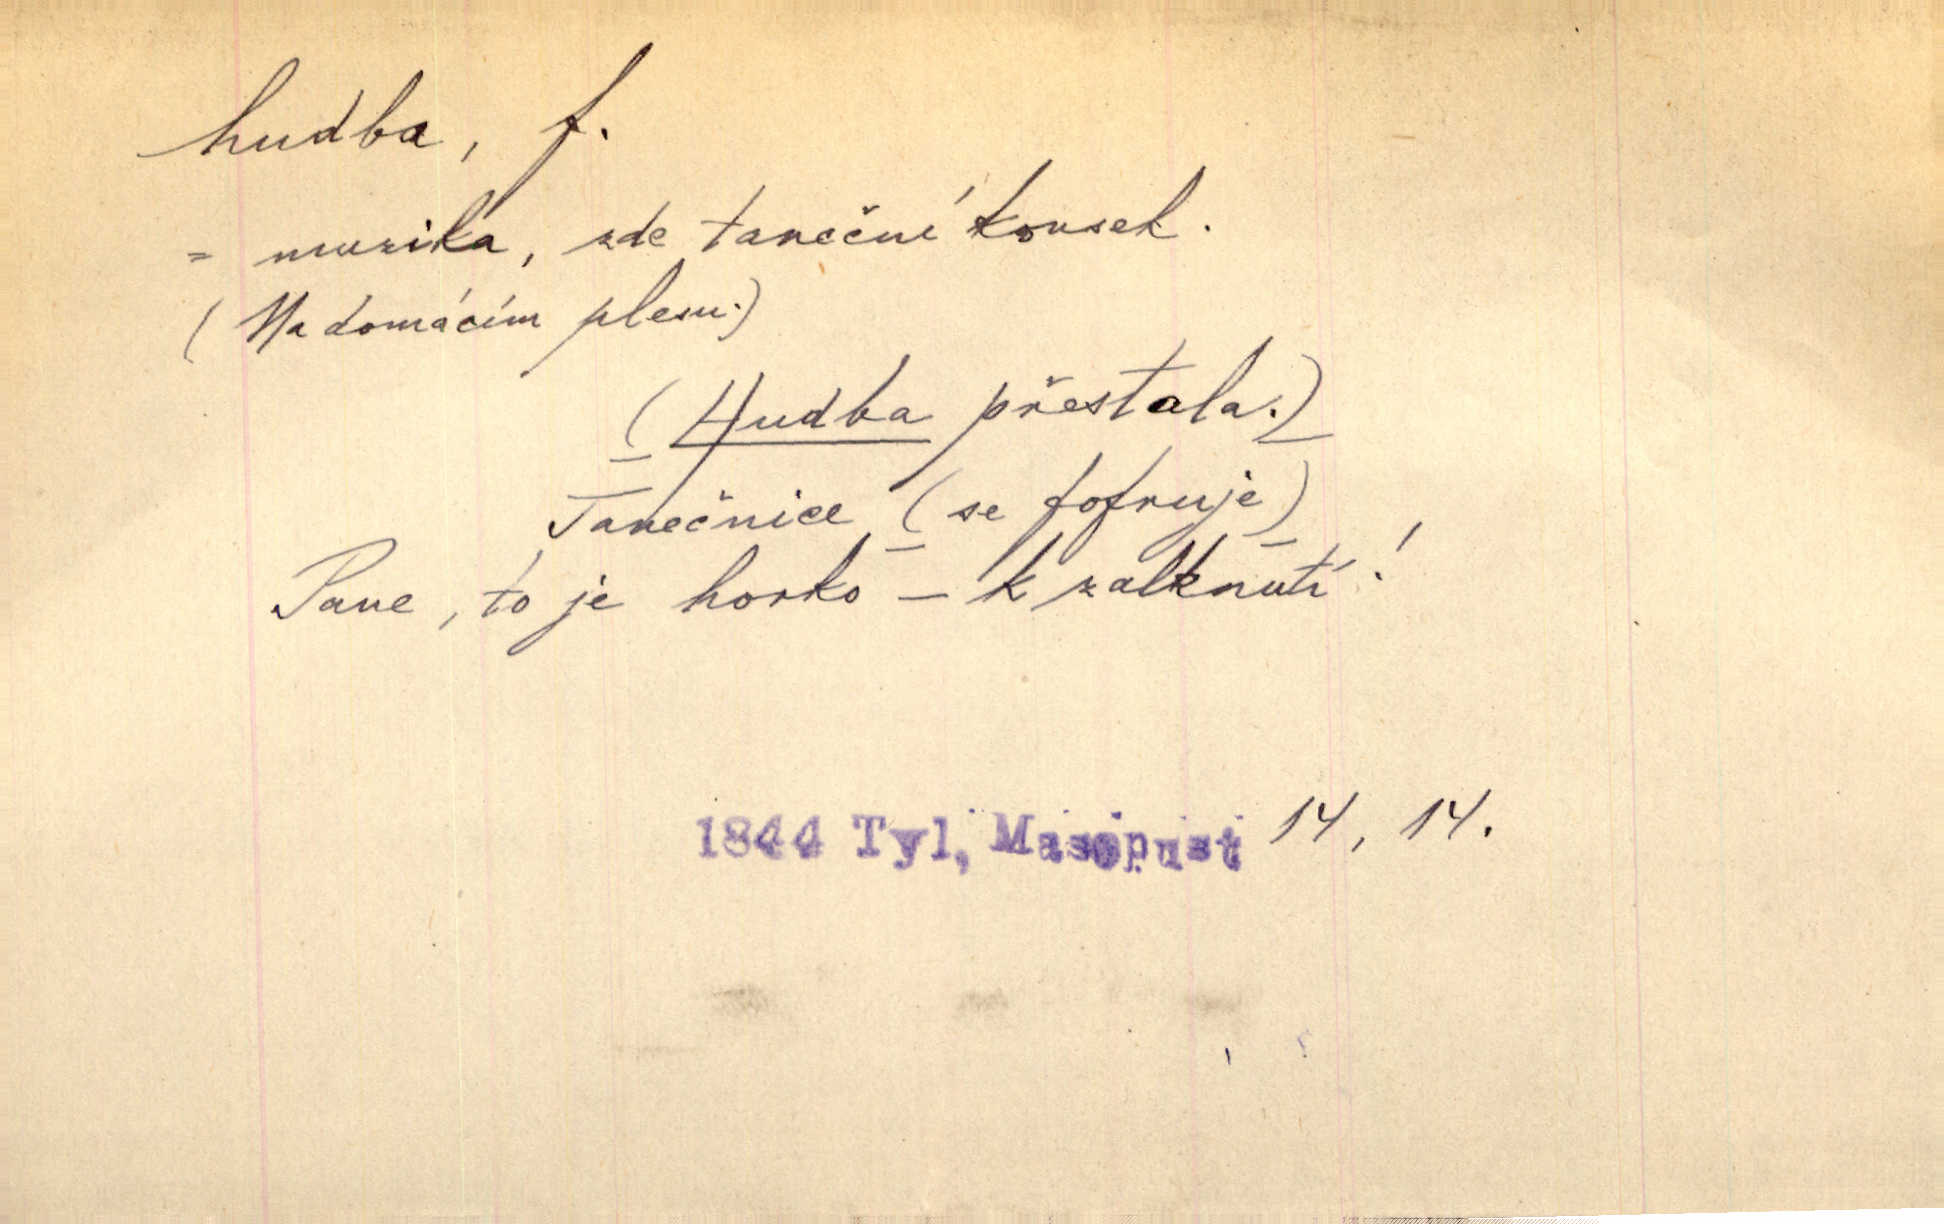 hudba, f.
= muzika, zde taneční kousek.
(Na domácím plesu.)
(Hudba přestala.)
Tanečnice (se fofruje)
Pane, to je horko – k zalknutí!
1844 Tyl, Masopust 14, 14.